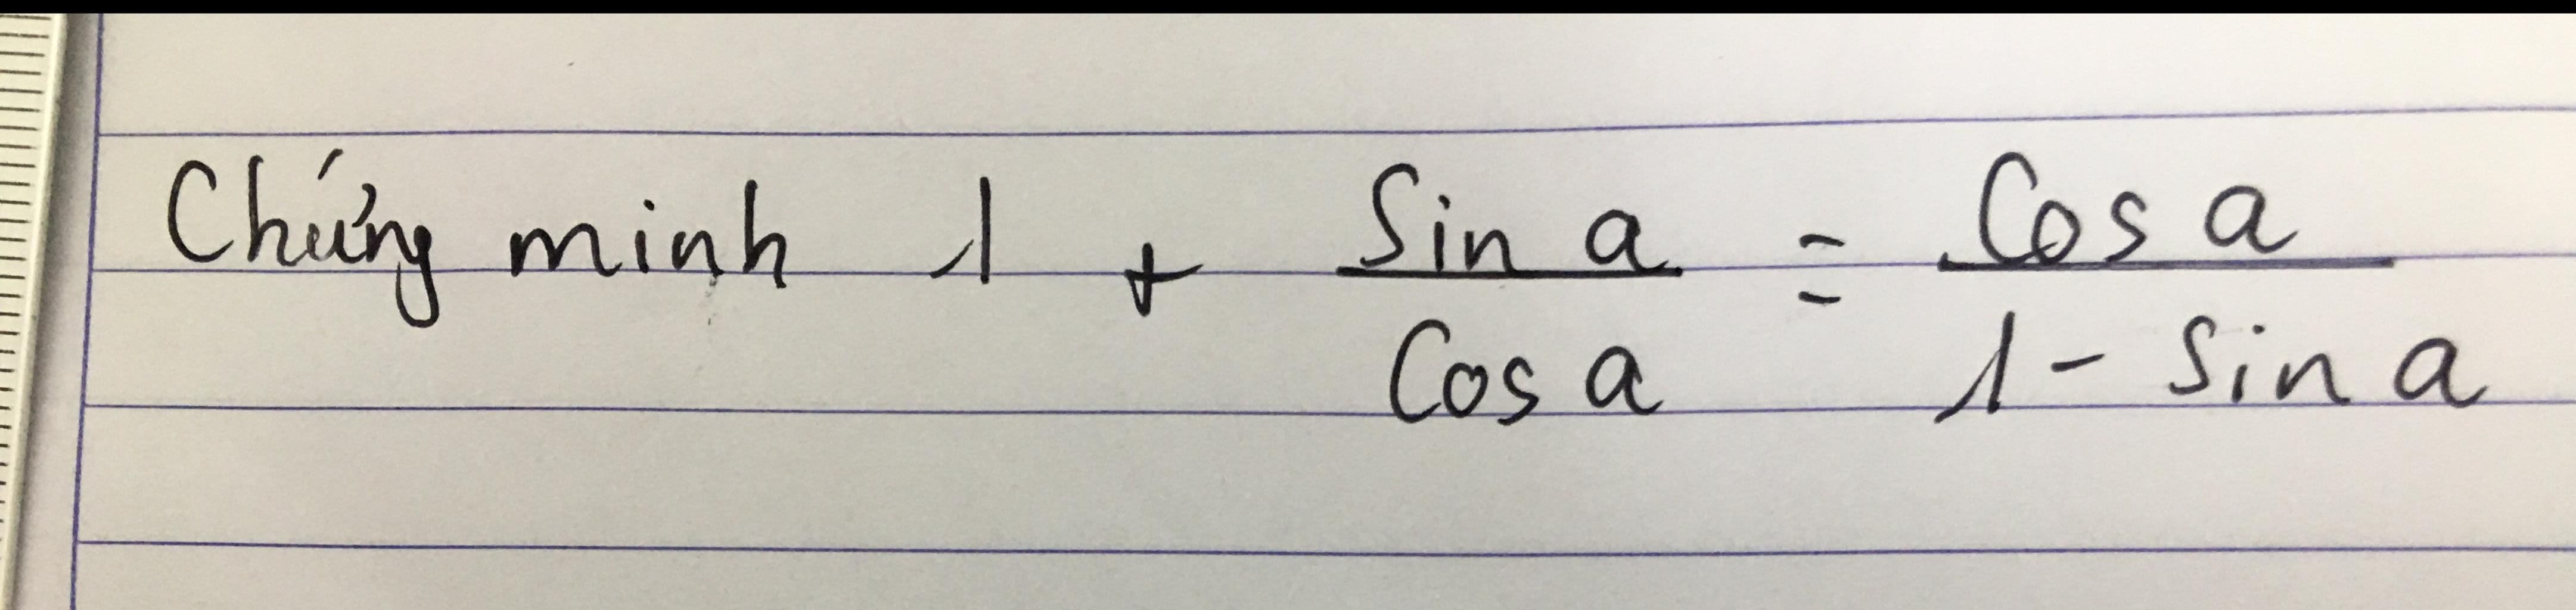 Chứng minh 1 + Sin a / Cos a = Cos a / 1 - Sin a